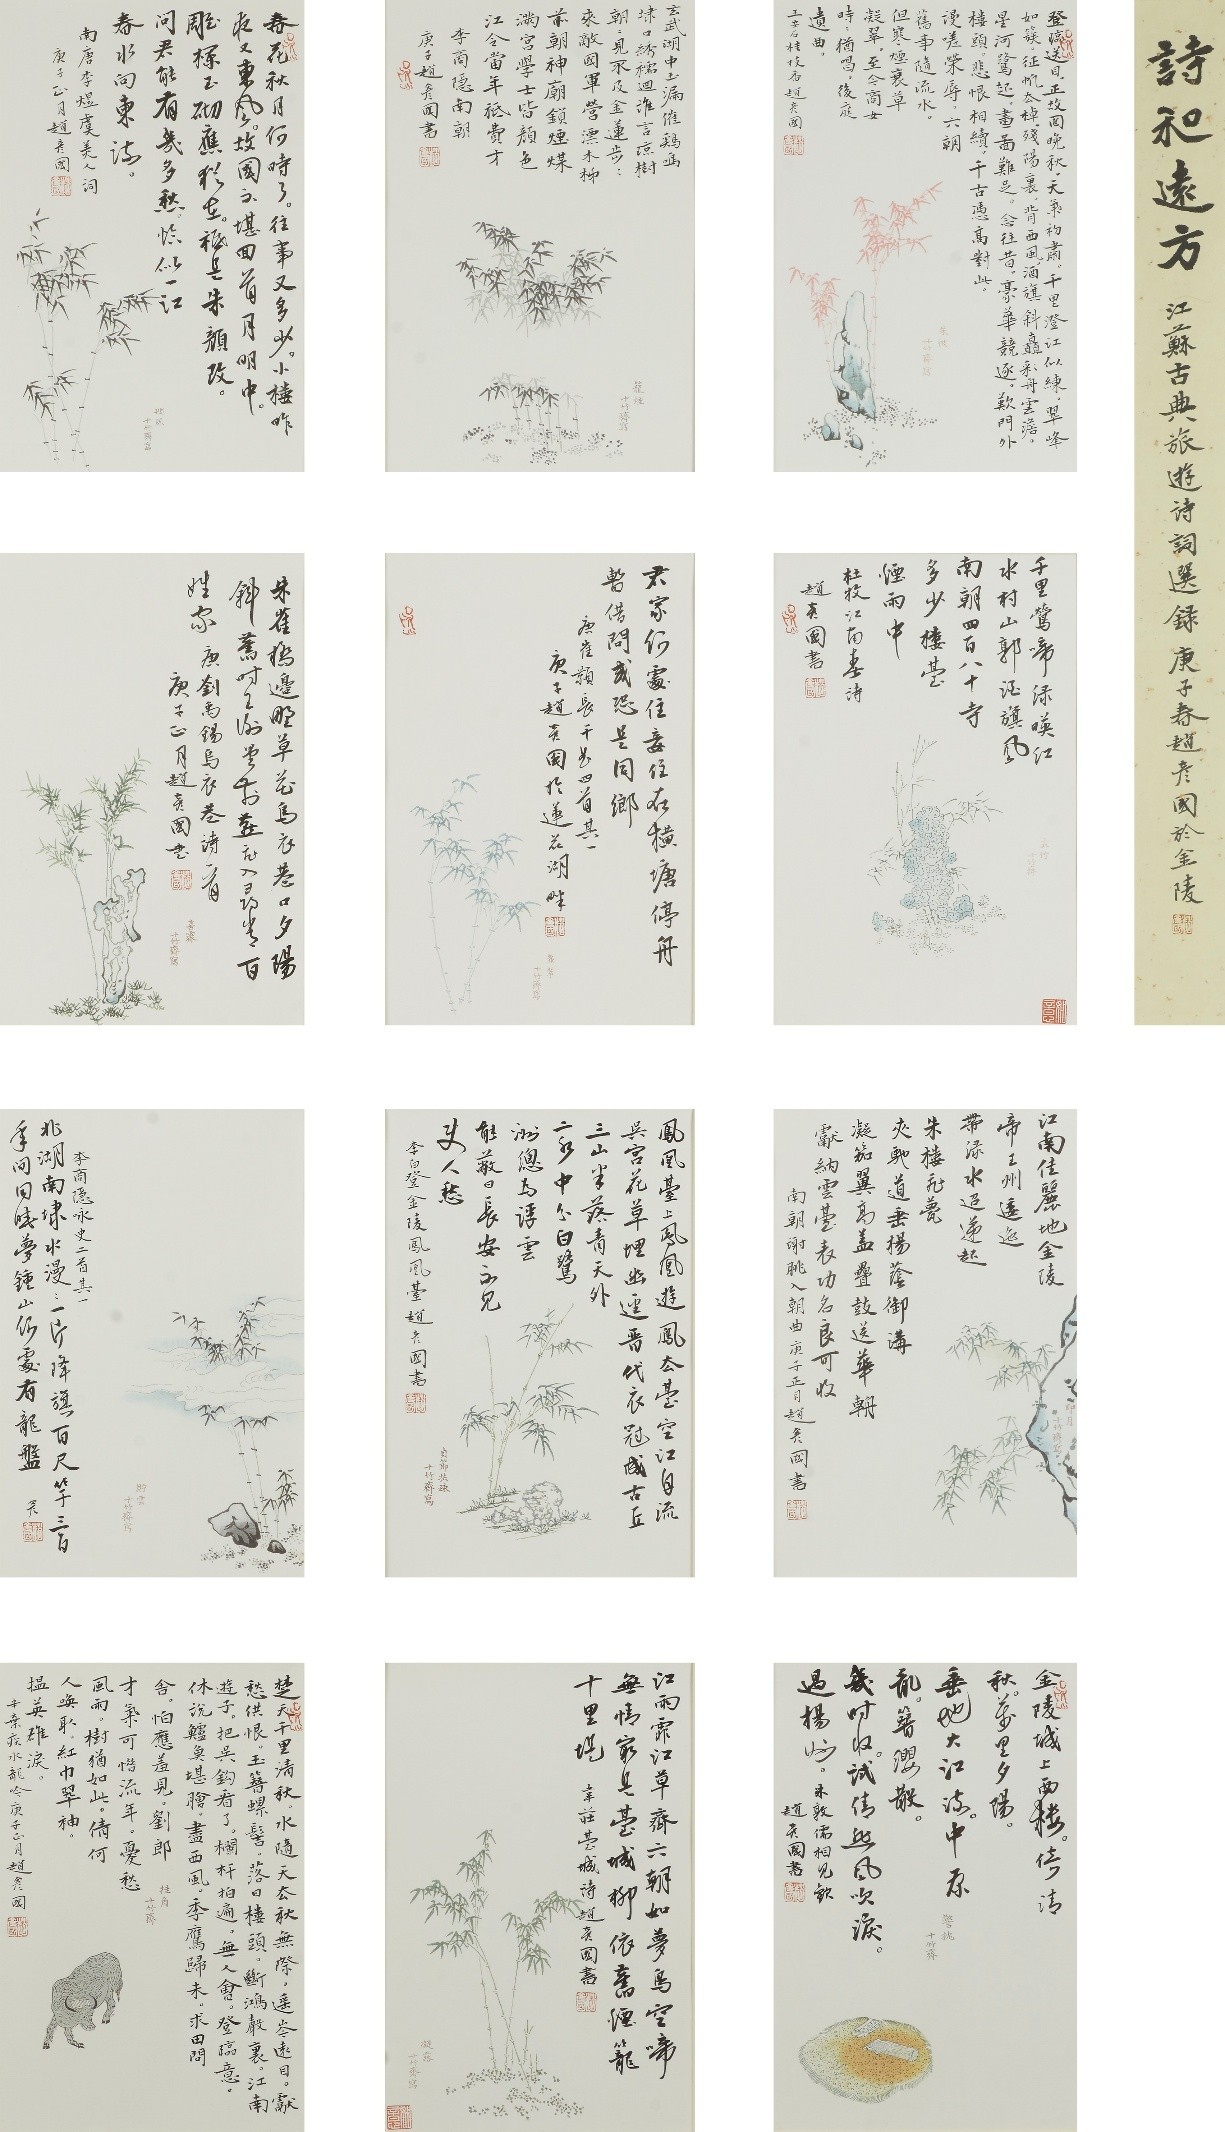 詩和遠方
江蘇古典旅遊詩詞選錄 庚子春趙彥國於金陵
登臨送目。正故國晚秋。天氣初肅。千里澄江似練。翠峰
如簇。征帆去棹殘陽裏。背西風。酒旗斜矗。彩舟雲澹。
星河鷺起。畫圖難足。念往昔。豪華競逐。歎門外
樓頭。悲恨相續。千古憑高對此。
漫嗟榮辱。六朝
舊事隨流水。
但寒煙衰草
凝翠。至今商女
時:猶唱。後庭
遺曲。
王安石桂枝香趙彥國
十竹齋寫
玄武湖中玉漏催鷄鳴
埭口繡襦迴誰言瓊樹
朝:見不及金蓮步:
來敵國軍營漂木柹
前朝神廟鎖煙煤
滿宮學士皆顏色
江令當年衹費才
李商隱南朝
庚子趙彥國書
籠煙
十竹齋寫
春花秋月何時了。往事又多少。小樓昨
夜又東風。故國不堪回首月明中。
雕欄玉砌應猶在。衹是朱顏改。
問君能有幾多愁。恰似一江
春水向東流。
南唐李煜虞美人詞
庚子正月趙彥國
十竹齋寫
千里鶯啼綠暎紅
水村山郭酒旗風
南朝四百八十寺
多少樓臺
煙雨中
杜牧江南春詩
趙彥國書
十竹齋
君家何處住妾住在橫塘停舟
暫借問或恐是同鄉
唐崔顥長干曲四首其一
庚子趙彥國於蓮花湖畔
十竹齋寫
朱雀橋邊野草花烏衣巷口夕陽
斜舊時王謝堂前燕飛入尋常百
姓家 唐劉禹錫烏衣巷詩一首
庚子正月趙彥國書
十竹齋寫
江南佳麗地金陵
帝王州逶迤
帶綠水迢遞起
朱樓飛甍
夾馳道垂楊蔭御溝
凝笳翼高蓋疊鼓送華輈
獻納雲臺表功名良可收
南朝謝朓入朝曲庚子正月趙彥國書
印月
十竹齋寫
鳳凰臺上鳳凰遊鳳去臺空江自流
吳宮花草埋幽逕晉代衣冠成古丘
三山半落青天外
二水中分白鷺
洲總為浮雲
能蔽日長安不見
使人愁
李白登金陵鳳凰臺趙彥國書
十竹齋寫
李商隱咏史二首其一
北湖南埭水漫:一片降旗百尺竿三百
年間同曉夢鍾山何處有龍盤
彥
十竹齋寫
金陵城上西樓。倚清
秋。萬里夕陽。
垂地大江流。中原
亂。簪纓散。
幾時收。試倩悲風吹淚。
過揚州。朱敦儒相見歡
趙彥國書
十竹齋
江雨霏:江草齊六朝如夢鳥空啼
無情最是臺城柳依舊煙籠
十里堤 韋莊臺城詩趙彥國書
十竹齋寫
楚天千里清秋。水隨天去秋無際。遙岑遠目。獻
愁供恨。玉簪螺髻。落日樓頭。斷鴻聲裏。江南
遊子。把吳鉤看了。欄杆拍遍。無人會。登臨意。
休說鱸魚堪膾。盡西風。季鷹歸未。求田問
舍。怕應羞見。劉郎
才氣可惜流年。憂愁
風雨。樹猶如此。倩何
人喚取。紅巾翠袖。
揾英雄淚。
辛棄疾水龍吟庚子正月趙彥國
十竹齋